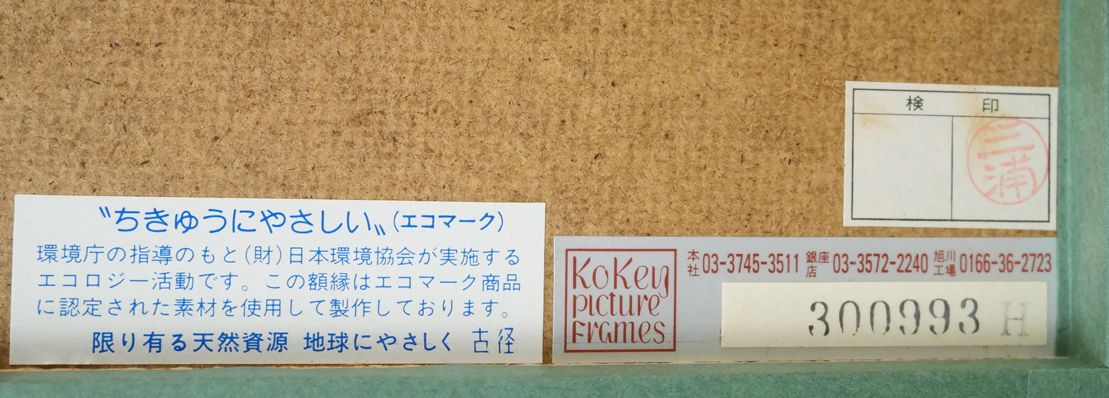 検 印
三浦
〝ちきゅうにやさしい〟(エコマーク)
環境庁の指導のもと(財)日本環境協会が実施する
エコロジー活動です。この額縁はエコマーク商品
に認定された素材を使用して製作しております。
限り有る天然資源 地球にやさしく 古径
KoKey
picture
Frames
本社 03-3745-3511 銀座店 03-3572-2240 旭川工場 0166-36-2723
300993 H